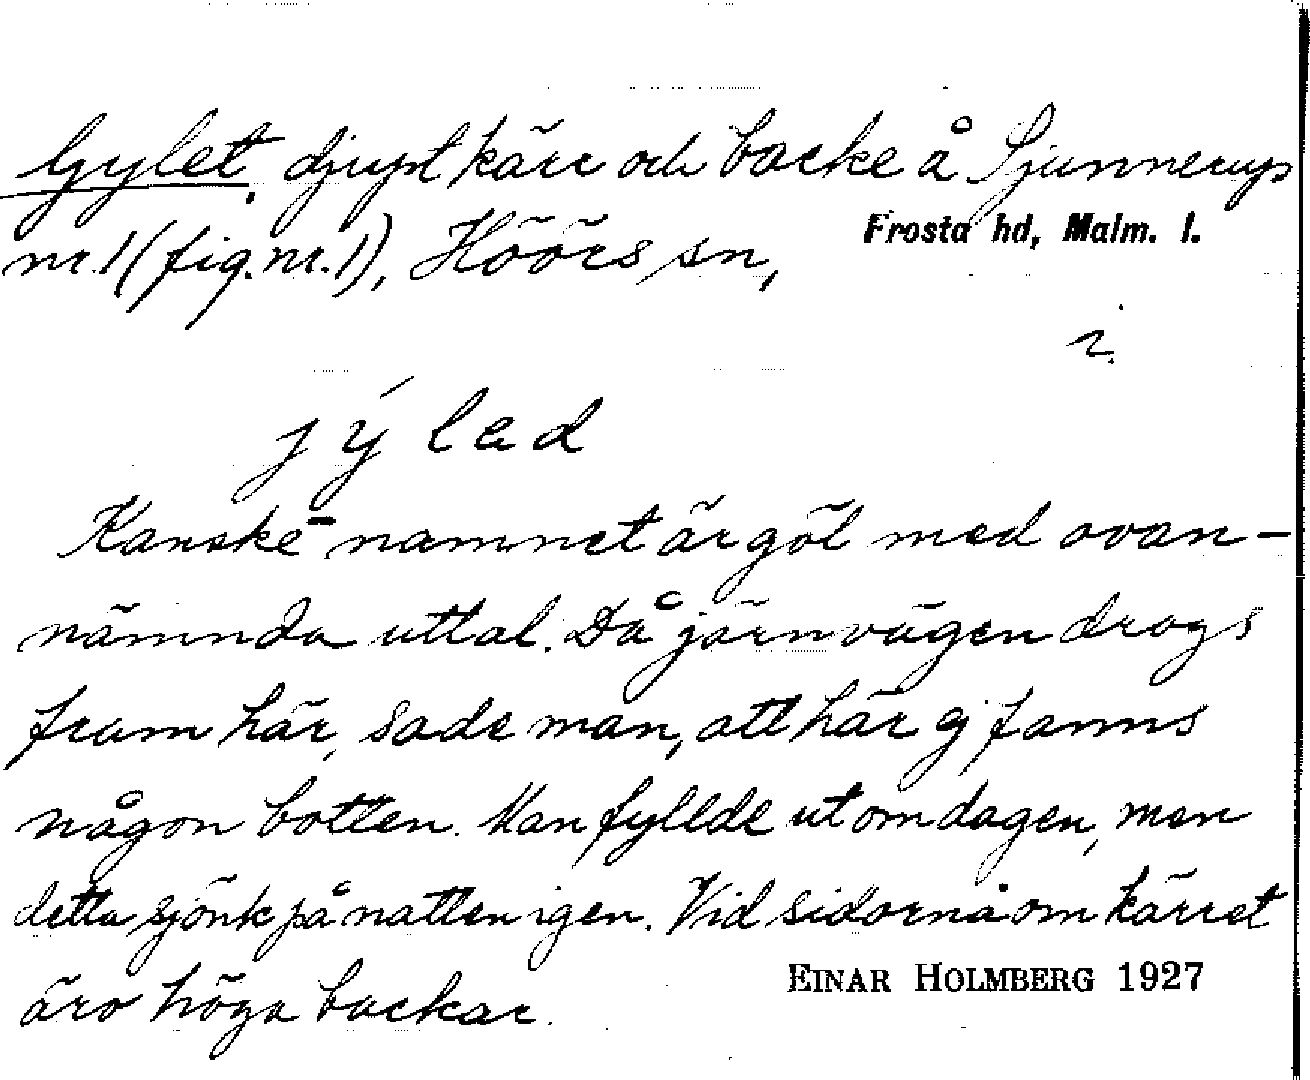 Gylet, djupt kärr och backe å Sjunnerup
nr.1 (fig. nr. 1), Höörs sn, Frosta hd, Malm. l.
i.
jýlad
Kanske namnet är göl med ovan-
nämnda uttal. Då järnvägen drogs
fram här, sade man, att här ej fanns
någon botten. Man fyllde ut om dagen, men
detta sjönk på natten igen. Vid sidorna om kärret
äro höga backar.
EINAR HOLMBERG 1927